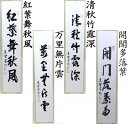 清秋竹露深
万里無片雲
紅葉舞秋風
閑門多落葉
清秋竹露深
紅葉舞秋風
萬里無片雲
閑門多落葉